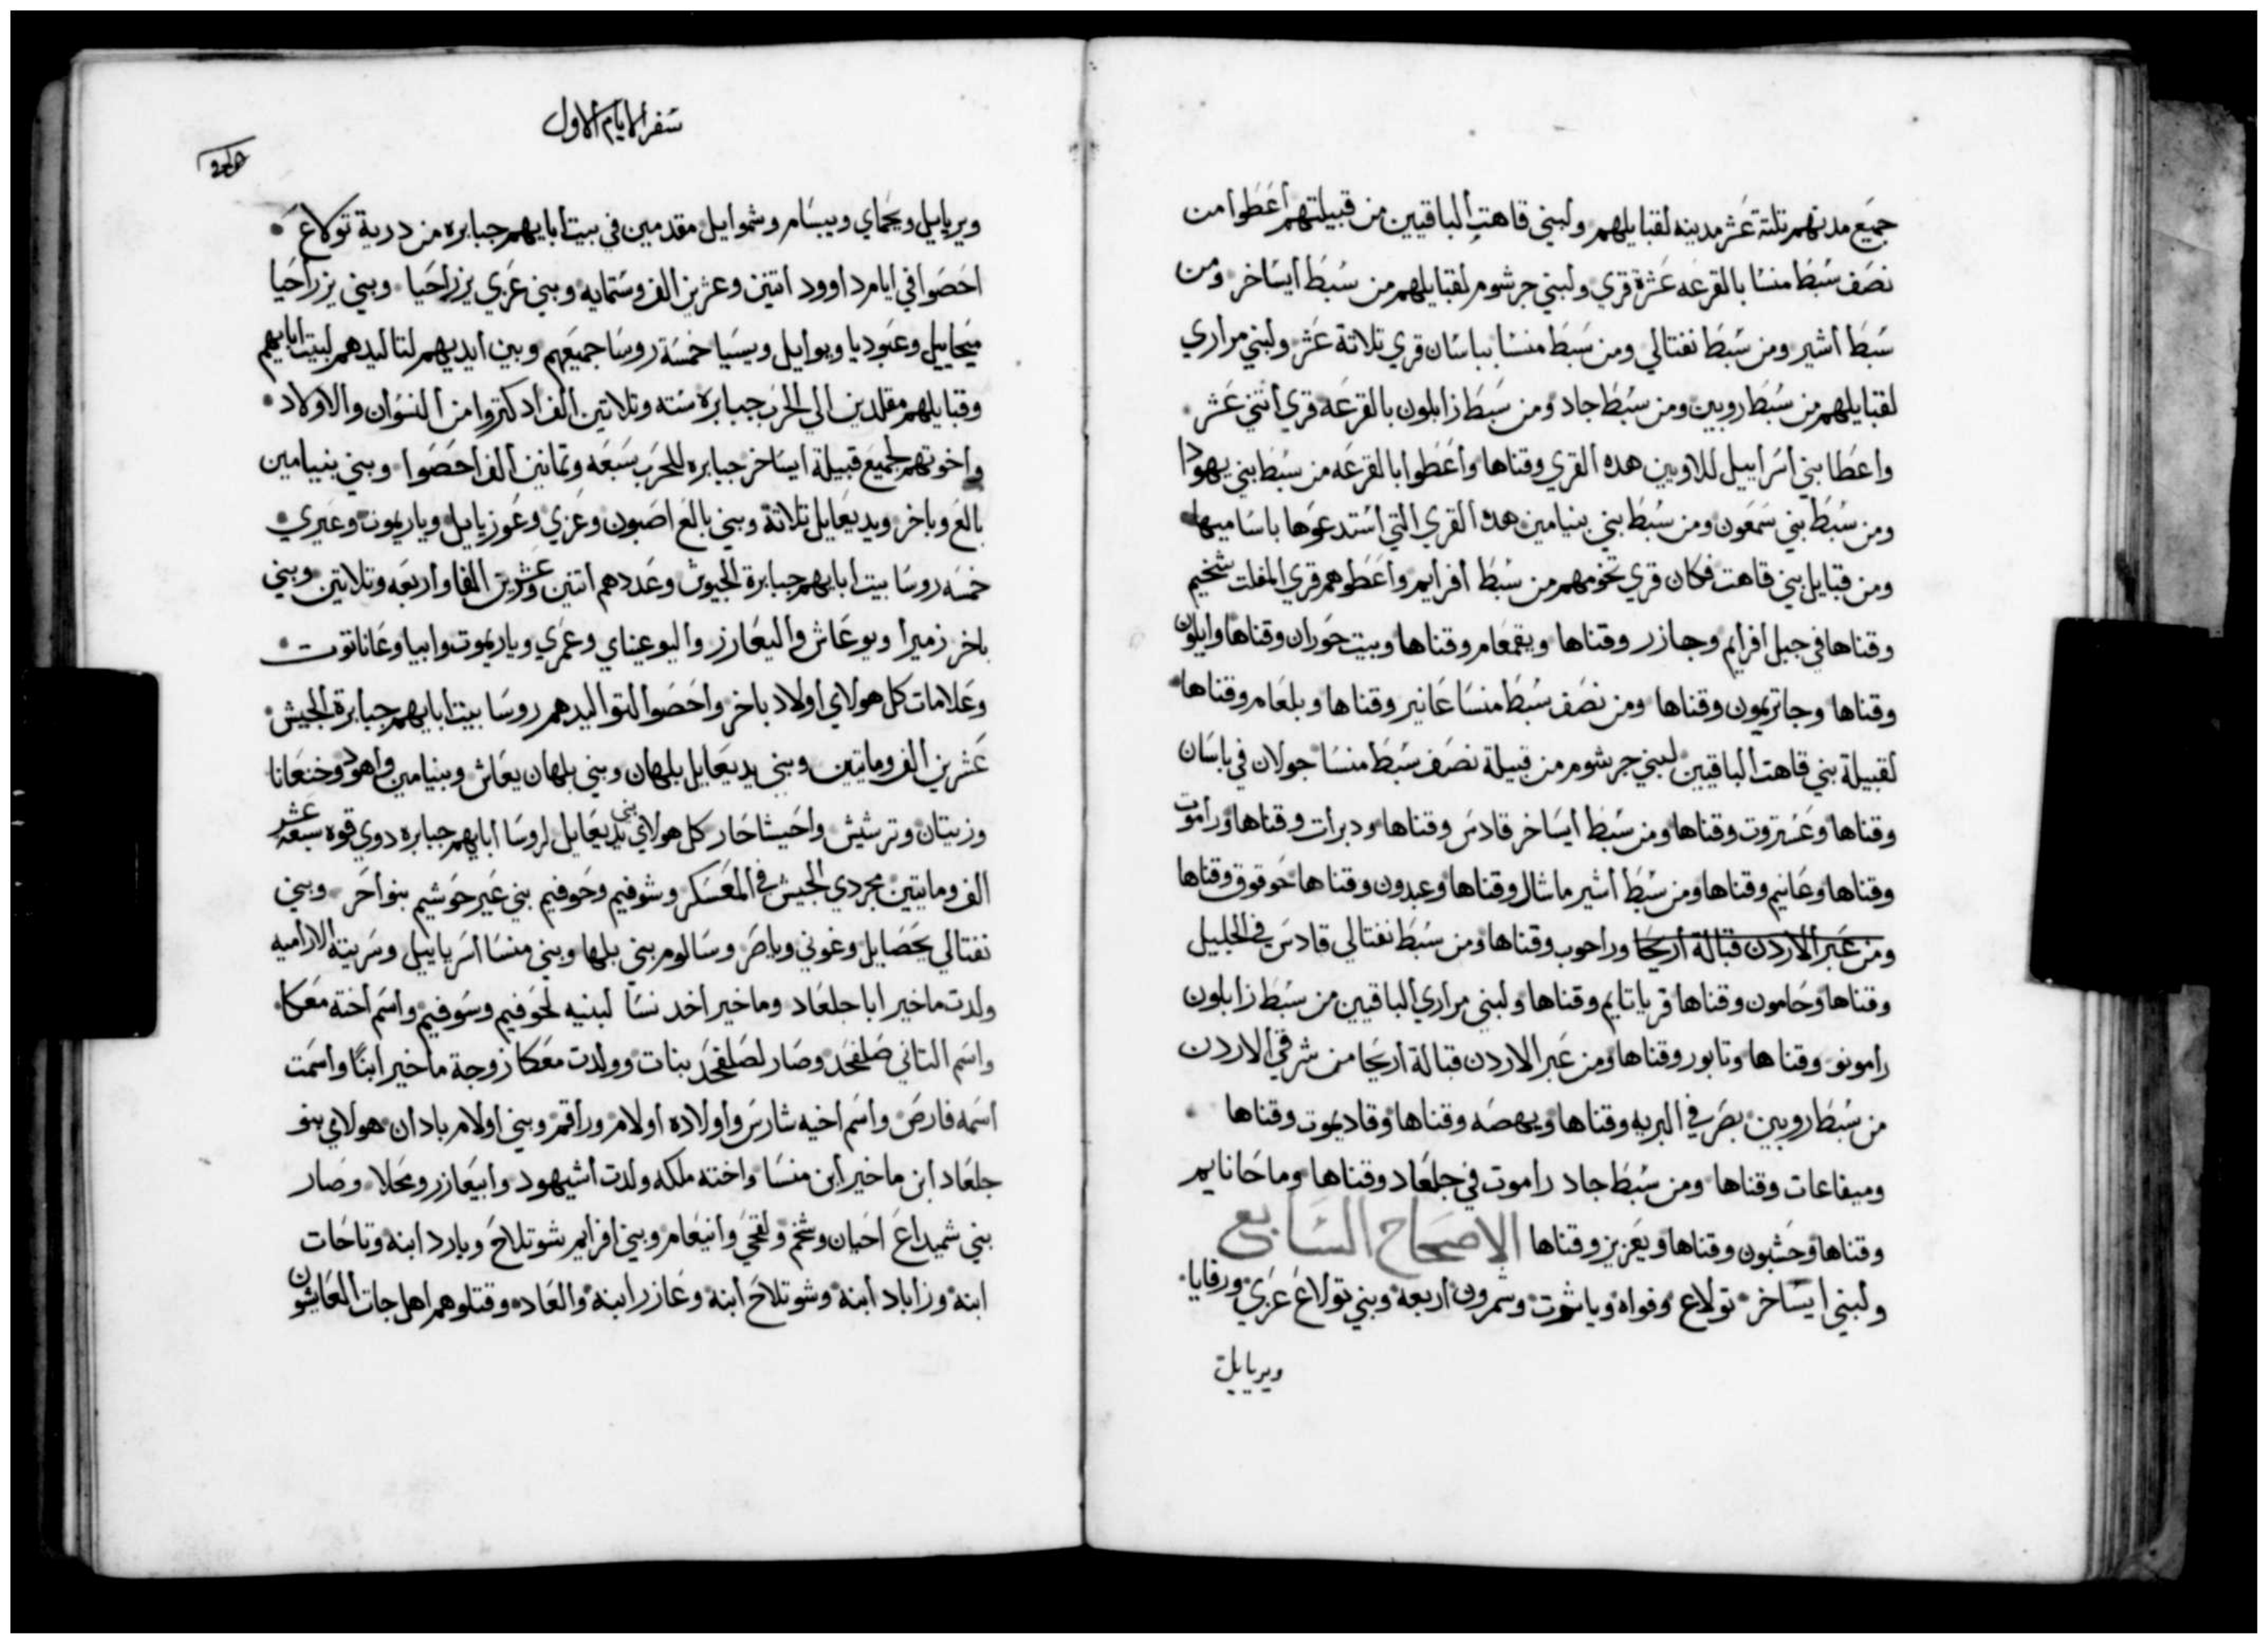 جميع مدنهم تلتة عشر مدينه لقبايلهم ولبني قاهت الباقيين من قبيلتهم أعطوا من
نصف سبط منسا بالقرعه عشرة قري ولبني جرشوم لقبايلهم من سبط أيساخر ومن
سبط أشير ومن سبط نفتالي ومن سبط منسا بباسان قري تلاتة عشر ولبني مراري
لقبايلهم من سبط روبين ومن سبط جاد ومن سبط زابلون بالقرعه قري أتني عشر
واعطا بني أسراييل للاويين هده القري وقناها وأعطوا بالقرعه من سبط بني يهودا
ومن سبط بني سمعون ومن سبط بني بنيامين هده القري التي أستدعوها باساميها
ومن قبايل بني قاهت فكان قري تخومهم من سبط أفرايم وأعطوهم قري المفلت شخيم
وقناها في جبل أفرايم وجازر وقناها ويقمعام وقناها وبيت حوران وقناها وايلون
وقناها وجاتريمون وقناها ومن نصف سبط منسا عانير وقناها وبلعام وقناها
لقبيلة بني قاهت الباقيين لبني جرشوم من قبيلة نصف سبط منسا جولان في باسان
وقناها وعشتروت وقناها ومن سبط أيساخر قادس وقناها ودبرات وقناها وراموت
وقناها وعانيم وقناها ومن سبط أشير ماشال وقناها وعبدون وقناها حوقوق وقناها
ومن عبر الاردن قبالة أريحا وراحوب وقناها ومن سبط نفتالي قادس في الجليل
وقناها وحامون وقناها قرياتايم وقناها ولبني مراري الباقيين من سبط زابلون
رامونو وقناها وتابور وقناها ومن عبر الاردن قبالة أريحا من شرقي الاردن
من سبط روبين بصر في البريه وقناها ويهصه وقناها وقاديموت وقناها
وميفاعات وقناها ومن سبط جاد راموت في جلعاد وقناها وماحانايم
وقناها وحشبون وقناها ويعزيز وقناها الاصحاح السابع
ولبني ايساخر تولاع وفواه وياشوت وشمرون أربعه وبني تولاع عزي ورفايا
ويريايل
سفر الايام الاول
ويريايل ويحماي ويبسام وشموايل مقدمين في بيت أبايهم جبابره من درية تولاع
احصوا في ايام داوود اتنين وعشرين الف وستمايه وبني عزي يزراحيا وبني يزراحيا
ميخاييل وعبوديا ويوايل ويسيا خمسة روسا جميعهم وبين أيديهم لتاليدهم لبيت ابايهم
وقبايلهم مقلدين الي الحرب جبابرة سته وتلاتين الف أد كتروا من النسوان والاولاد
واخوتهم لجميع قبيلة ايساخر جبابره للحرب سبعه وتمانين الف احصوا وبني بنيامين
بالع وباخر ويديعايل تلاتة وبني بالع اصبون وعزي وعوزيايل وياريموت وعيري
خمسه روسا بيت ابايهم جبابرة الجيوش وعددهم اتنين وعشرين الفا واربعه وتلاتين وبني
باخر زميرا ويوعاش واليعازر واليوعيناي وعمري وياريموت وابيا وعاناتوت
وعلامات كل هولاي أولاد باخر وأحصوا لتواليدهم روسا بيت ابايهم جبابرة الجيش
عشرين الف وماتين وبني يديعايل بلهان وبني بلهان يعاش وبنيامين واهود وخنعانا
وزيتان وترشيش واحيشاحار كل هولاي بني يديعايل لروسا أبايهم جبابره دوي قوه سبعة عشر
الف ومايتين مجردي الجيش في المعسكر وشوفيم وحوفيم بني عير حوشيم بنو احر وبني
نفتالي يحصايل وغوني وياصر وسالوم بني بلها وبني منسا أسرياييل وسريته الاراميه
ولدت ماخير ابا جلعاد وماخير أخد نسا لبنيه لحوفيم وسوفيم واسم اخته معكا
واسم التاني صلفحد وصار لصلفحد بنات وولدت معكا زوجة ماخير ابنا واسمت
اسمه فارص واسم اخيه شارس وأولاده أولام وراقم وبني اولام بادان هولاي بنو
جلعاد ابن ماخير أبن منسا واخته ملكه ولدت أشيهود وابيعازر ومحلا وصار
بني شميداع احيان وشخم ولقحي وانيعام وبني افرايم شوتلاح وبارد ابنه وتاحات
ابنه وزاباد أبنه وشوتلاح أبنه وعازر ابنه والعاد وقتلوهم اهل جات العايشون